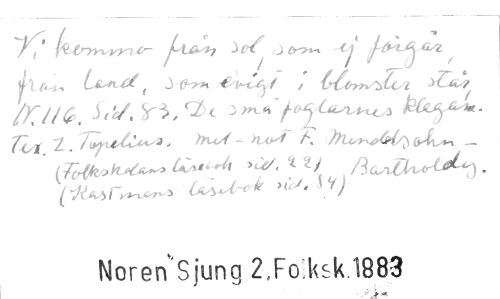 Vi kommo från sol, som ej förgår,
från land, som evigt i blomster står,
N. 116. Sid. 83. De små foglarnes klagan.
Tex. Z. Topelius. mel-not F. Mendelsohn-
(Folkskolans läsebok sid. 221 Bartholdy.
(Kastmans läsebok sid. 54)
Noren Sjung 2, Folksk. 1883